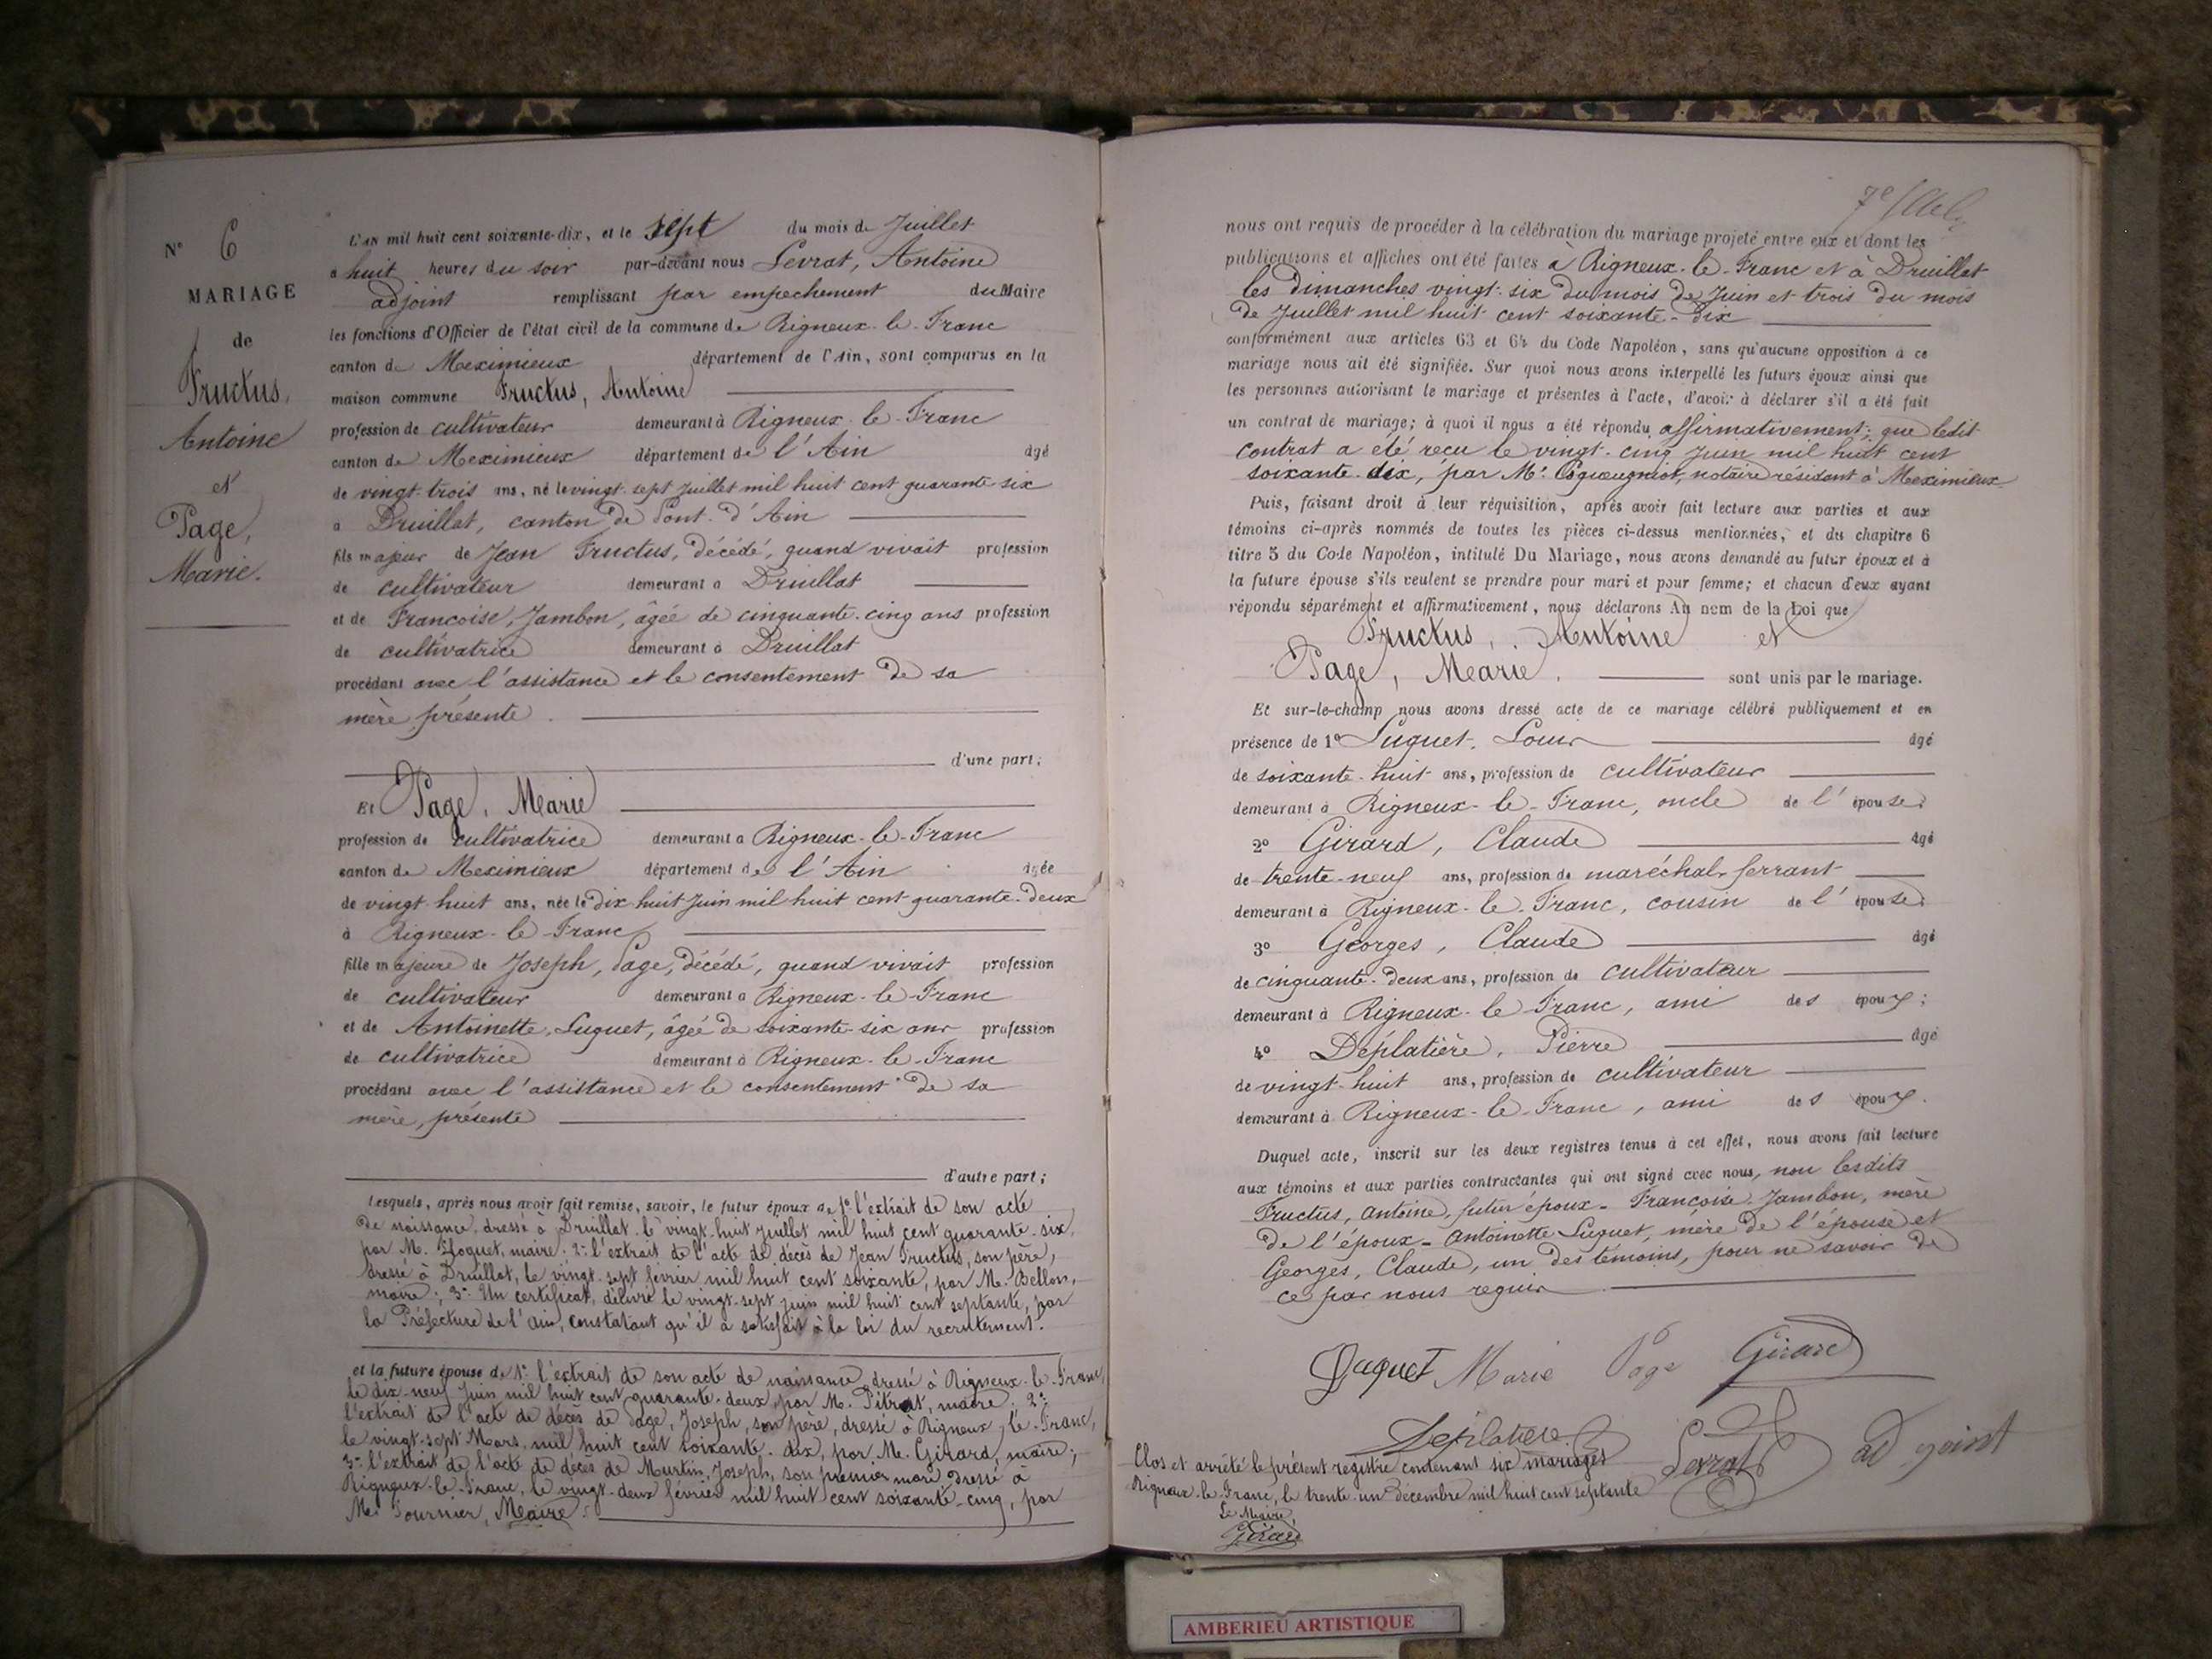 N° 6
MARIAGE
de
Fructus,
Antoine
et
Page,
Marie.
L'AN mil huit cent soixante-dix, et le sept du mois de Juillet
a huit heures du soir par-devant nous Levrat, Antoine
adjoint remplissant par empechement du Maire
les fonctions d'Officier de l'état civil de la commune de Rigneux-le-Franc
canton de Meximieux département de l'Ain, sont comparus en la
maison commune Fructus, Antoine
profession de cultivateur demeurant à Rigneux-le-Franc
canton de Meximieux département de l'Ain âgé
de vingt-trois ans, né le vingt-sept Juillet mil huit cent quarante-six
a Druillat, canton de Pont-d'Ain
fils majeur de Jean Fructus, décédé, quand vivait profession
de cultivateur demeurant a Druillat
et de Francoise, Jambon, âgée de cinquante-cinq ans profession
de cultivatrice demeurant à Druillat
procédant avec l'assistance et le consentement de sa
mère présente.
d'une part;
Et Page, Marie
profession de cultivatrice demeurant a Rigneux-le-Franc
canton de Meximieux département de l'Ain âgée
de vingt-huit ans, née le dix-huit Juin mil huit cent quarante-deux
à Rigneux-le-Franc
fille majeure de Joseph, Page, décédé, quand vivait profession
de cultivateur demeurant a Rigneux-le-Franc
et de Antoinette, Luguet, âgée de soixante-six ans profession
de cultivatrice demeurant à Rigneux-le-Franc
procédant avec l'assistance et le consentement de sa
mère, présente
d'autre part;
Lesquels, après nous avoir fait remise, savoir, le futur époux de 1° l'extrait de son acte
de naissance, dressé à Druillat le vingt-huit Juillet mil huit cent quarante-six,
par M. maire; 2° l'extrait de l'acte de décès de Jean Fructus, son père,
dressé à Druillat, le vingt-sept février mil huit cent soixante, par M. Bellon,
maire; 3° Un certificat, délivré le vingt-sept juin mil huit cent septante, par
la Préfecture de l'Ain, constatant qu'il a satisfait à la loi du recrutement.
et la future épouse de 1° l'extrait de son acte de naissance dressé à Rigneux-le-Franc,
le dix-neuf Juin mil huit cent quarante-deux, par M. Pitrat, maire; 2°
l'extrait de l'acte de décès de Page, Joseph, son père, dressé à Rigneux-le-Franc,
le vingt-sept Mars, mil huit cent soixante-dix, par M. Girard, maire;
3° l'extrait de l'acte de décès de Murtin, Joseph, son premier mari dressé à
Rigneux-le-Franc, le vingt-deux février mil huit cent soixante-cinq, par
M. Fournier, Maire.
nous ont requis de procéder à la célébration du mariage projeté entre eux et dont les
publications et affiches ont été faites à Rigneux-le-Franc et à Druillat
les Dimanches vingt-six du mois de Juin et trois du mois
de Juillet mil huit cent soixante-dix
conformément aux articles 63 et 64 du Code Napoléon, sans qu'aucune opposition à ce
mariage nous ait été signifiée. Sur quoi nous avons interpellé les futurs époux ainsi que
les personnes autorisant le mariage et présentes à l'acte, d'avoir à déclarer s'il a été fait
un contrat de mariage; à quoi il nous a été répondu affirmativement; que ledit
contrat a été reçu le vingt-cinq Juin mil huit cent
soixante-dix, par Me notaire résidant à Meximieux
Puis, faisant droit à leur réquisition, après avoir fait lecture aux parties et aux
témoins ci-après nommés de toutes les pièces ci-dessus mentionnées, et du chapitre 6
titre 5 du Code Napoléon, intitulé Du Mariage, nous avons demandé au futur époux et à
la future épouse s'ils veulent se prendre pour mari et pour femme; et chacun d'eux ayant
répondu séparément et affirmativement, nous déclarons Au nom de la Loi que
Fructus, Antoine et
Page, Marie. sont unis par le mariage.
Et sur-le-champ nous avons dressé acte de ce mariage célébré publiquement et en
présence de 1° Luguet, Louis âgé
de soixante-huit ans, profession de cultivateur
demeurant à Rigneux-le-Franc, oncle de l'épouse;
2° Girard, Claude âgé
de trente-neuf ans, profession de maréchal-ferrant
demeurant à Rigneux-le-Franc, cousin de l'épouse;
3° Georges, Claude âgé
de cinquante-deux ans, profession de cultivateur
demeurant à Rigneux-le-Franc, ami des époux;
4° Déplatière, Pierre âgé
de vingt-huit ans, profession de cultivateur
demeurant à Rigneux-le-Franc, ami des époux.
Duquel acte, inscrit sur les deux registres tenus à cet effet, nous avons fait lecture
aux témoins et aux parties contractantes qui ont signé avec nous, non lesdits
Fructus, Antoine, futur époux - Francoise Jambon, mère
de l'époux - Antoinette Luguet, mère de l'épouse et
Georges, Claude, un des témoins, pour ne savoir de
ce par nous requis
Luguet Marie Page Girard
Deplatiere Levrat ad joint
Clos et arrêté le présent registre contenant six mariages
Rigneux-le-Franc, le trente-un décembre mil huit cent septante
Le Maire,
Girard
AMBERIEU ARTISTIQUE